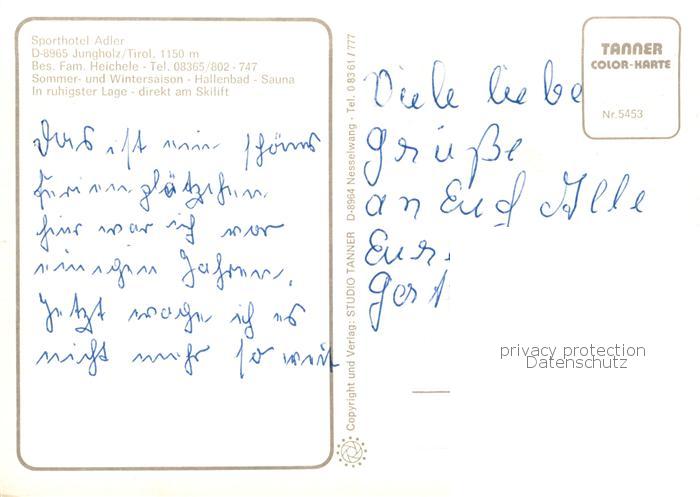 Sporthotel Adler
D-8965 Jungholz/Tirol, 1150 m
Bes. Fam. Heichele - Tel. 08365/802 - 747
Sommer- und Wintersaison - Hallenbad - Sauna
In ruhigster Lage - direkt am Skilift
Das ist mein schönes
Ferienplätzchen.
hier war ich vor
einigen Jahren.
Jetzt wage ich es
nicht mehr so weit
Copyright und Verlag: STUDIO TANNER D-8964 Nesselwang - Tel. 08361/777
TANNER
COLOR-KARTE
Nr. 5453
Viele liebe
Grüße
an Euch Alle
Eure
privacy protection
Datenschutz